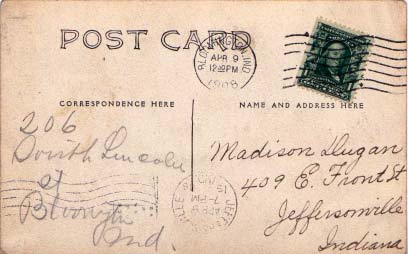 POST CARD
BLOOMINGTON, IND.
APR 9
12 30 PM
1908
CORRESPONDENCE HERE
NAME AND ADDRESS HERE
206
South Lincoln
st
Ind.
Madison Dugan
409 E. Front St
Jeffersonville
Indiana
APR 9
7 PM